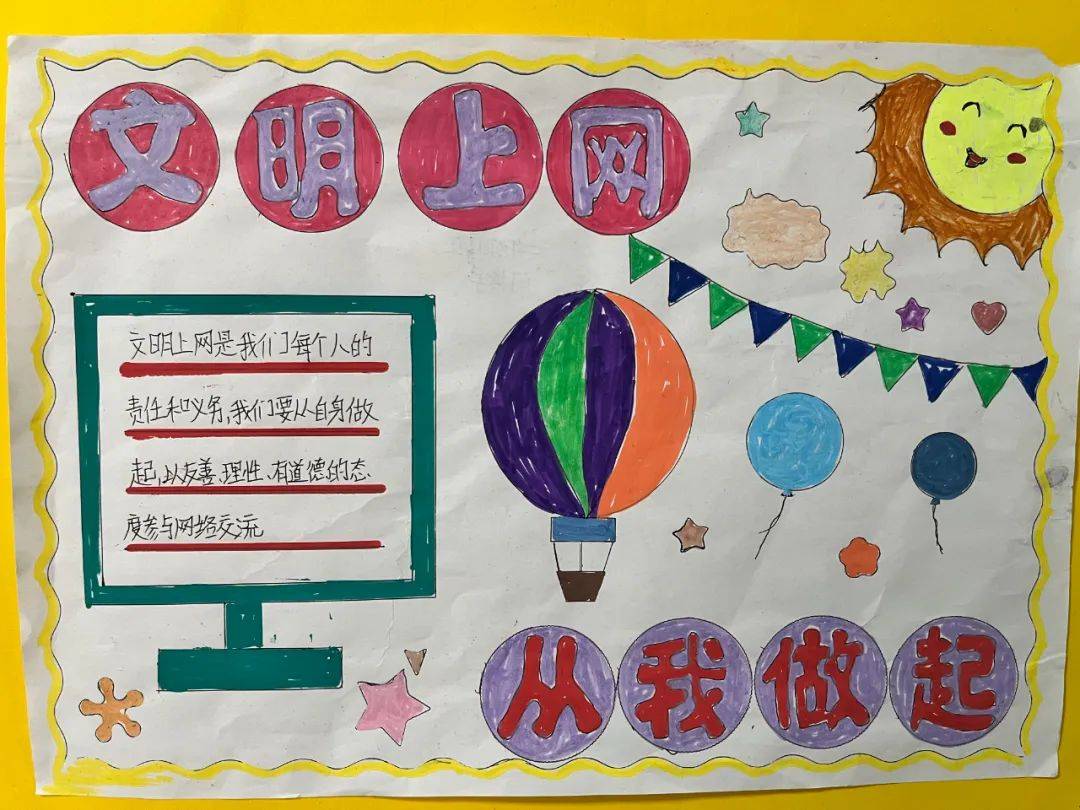 文明上网
文明上网是我们每个人的
责任和义务,我们要从自身做
起,以友善、理性、有道德的态
度参与网络交流
从我做起